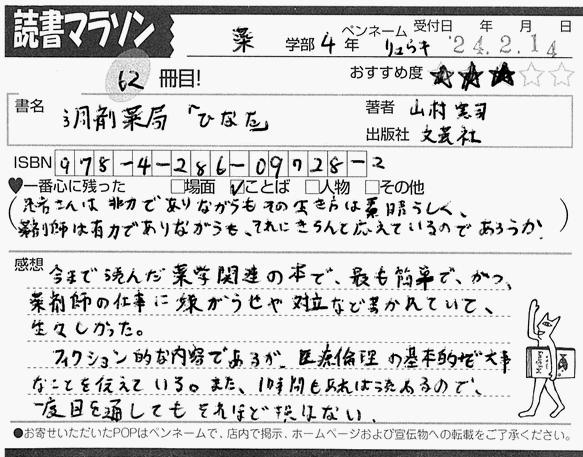 読書マラソン
薬 学部 4 年 ペンネーム りゅらき 受付日 年 月 日
'24.2.14
62 冊目! おすすめ度 ★★★☆☆
書名 調剤薬局「ひなた」
著者 山村
出版社 文芸社
ISBN 978-4-286-09728-2
♥一番心に残った □場面 ☑ことば □人物 □その他
(患者さんは非力でありながらもその生き方は素晴らしく、
薬剤師は有力でありながらも、それにきちんと応えているのであろうか)
感想
今まで読んだ薬学関連の本で、最も簡単で、かつ、
薬剤師の仕事に嫌がらせや対立など書かれていて、
生々しかった。
フィクション的な内容であるが、医療倫理の基本的で大事
なことを伝えている。また、1時間もあれば読めるので、
一度目を通してもそれほど損はない。
●お寄せいただいたPOPはペンネームで、店内で掲示、ホームページおよび宣伝物への転載をご了承ください。